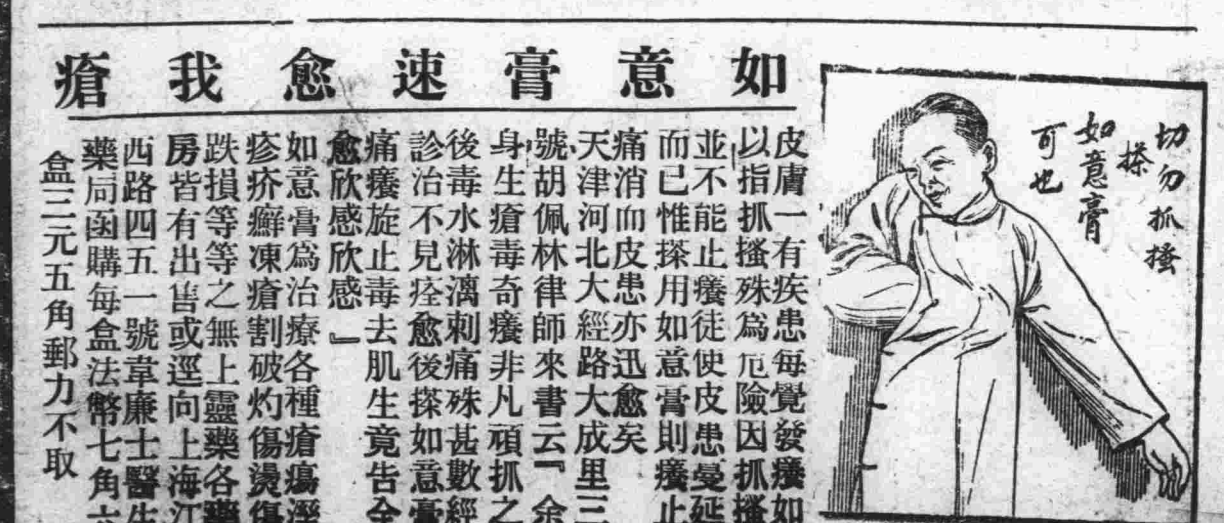 切勿抓搔
搽
如意膏
可也
如意膏速愈我瘡
皮膚一有疾患每覺發癢如
以指抓搔殊爲危險因抓搔
並不能止癢徒使皮患蔓延
而已惟搽用如意膏則癢止
痛消而皮患亦迅愈矣
天津河北大經路大成里三
號胡佩林律師來書云『余
身生瘡毒奇癢非凡頑抓之
後毒水淋漓刺痛殊甚數經
診治不見痊愈後搽如意膏
痛癢旋止毒去肌生竟告全
愈欣感欣感』
如意膏爲治療各種瘡瘍溼
疹疥癬凍瘡割破灼傷燙傷
跌損等等之無上靈藥各藥
房皆有出售或逕向上海江
西路四五一號韋廉士醫生
藥局函購每盒法幣七角六
盒三元五角郵力不取